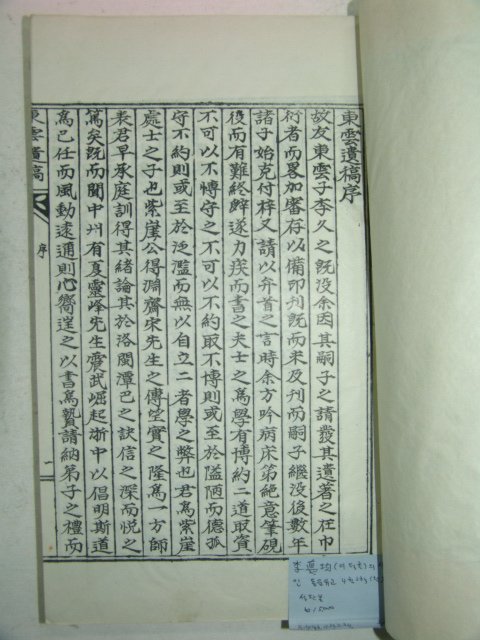 東雲遺稿序
故友東雲子李久之旣没余因其嗣子之請發其遺著之在巾
衍者而畧加審存以備卽刊旣而未及刊而嗣子繼没後數年
諸子始克付梓又請以弁首之言時余方吟病床第絶意筆硯
後而有難終辭遂力疾而書之夫士之爲學有博約二道取資
不可以不博守之不可以不約取不博則或至於隘陋而德孤
守不約則或至於泛濫而無以自立二者學之弊也君爲紫崖
處士之子也紫崖公得淵齋宋先生之傳望實之隆爲一方師
表君早承庭訓得其緒論其於洛閩潭巴之訣信之深而悅之
篤矣旣而聞中州有夏靈峰先生震武崛起浙中以倡明斯道
爲已任而風動遠通則心嚮逞之以書爲贄請納弟子之禮而
東雲遺稿
序
一